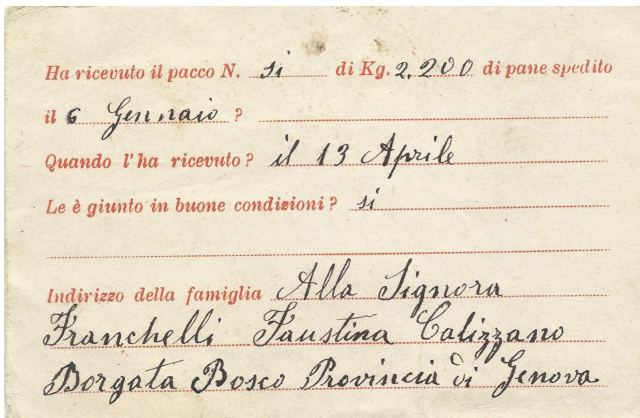 Ha ricevuto il pacco N. si di Kg. 2,200 di pane spedito
il 6 Gennaio ?
Quando l'ha ricevuto? il 13 Aprile
Le è giunto in buone condizioni? si
Indirizzo della famiglia Alla Signora
Franchelli Faustina Calizzano
Borgata Bosco Provincia di Genova